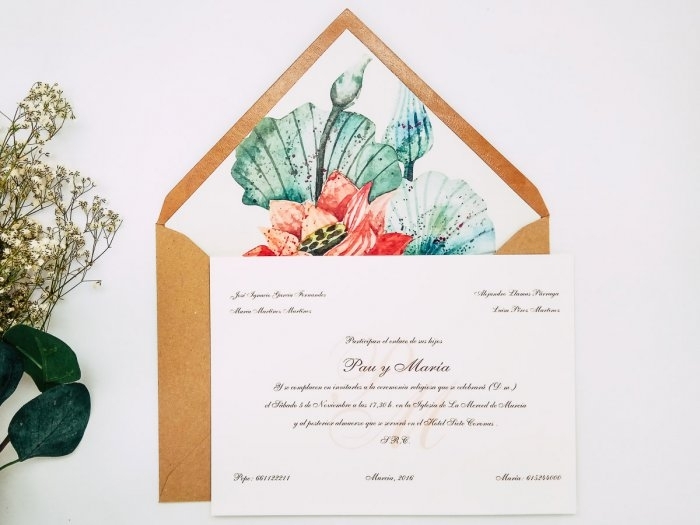 José Ignacio García Fernandez
María Martínez Martínez
Alejandro Llamas Párraga
Luisa Pérez Martínez
Participan el enlace de sus hijos
Pau y María
Y se complacen en invitarles a la ceremonia religiosa que se celebrará (D.m.)
el Sábado 5 de Noviembre a las 17,30 h. en la Iglesia de La Merced de Murcia
y al posterior almuerzo que se servirá en el Hotel Siete Coronas.
S.R.C.
Pepe: 661122211
Murcia, 2016
María: 615244000